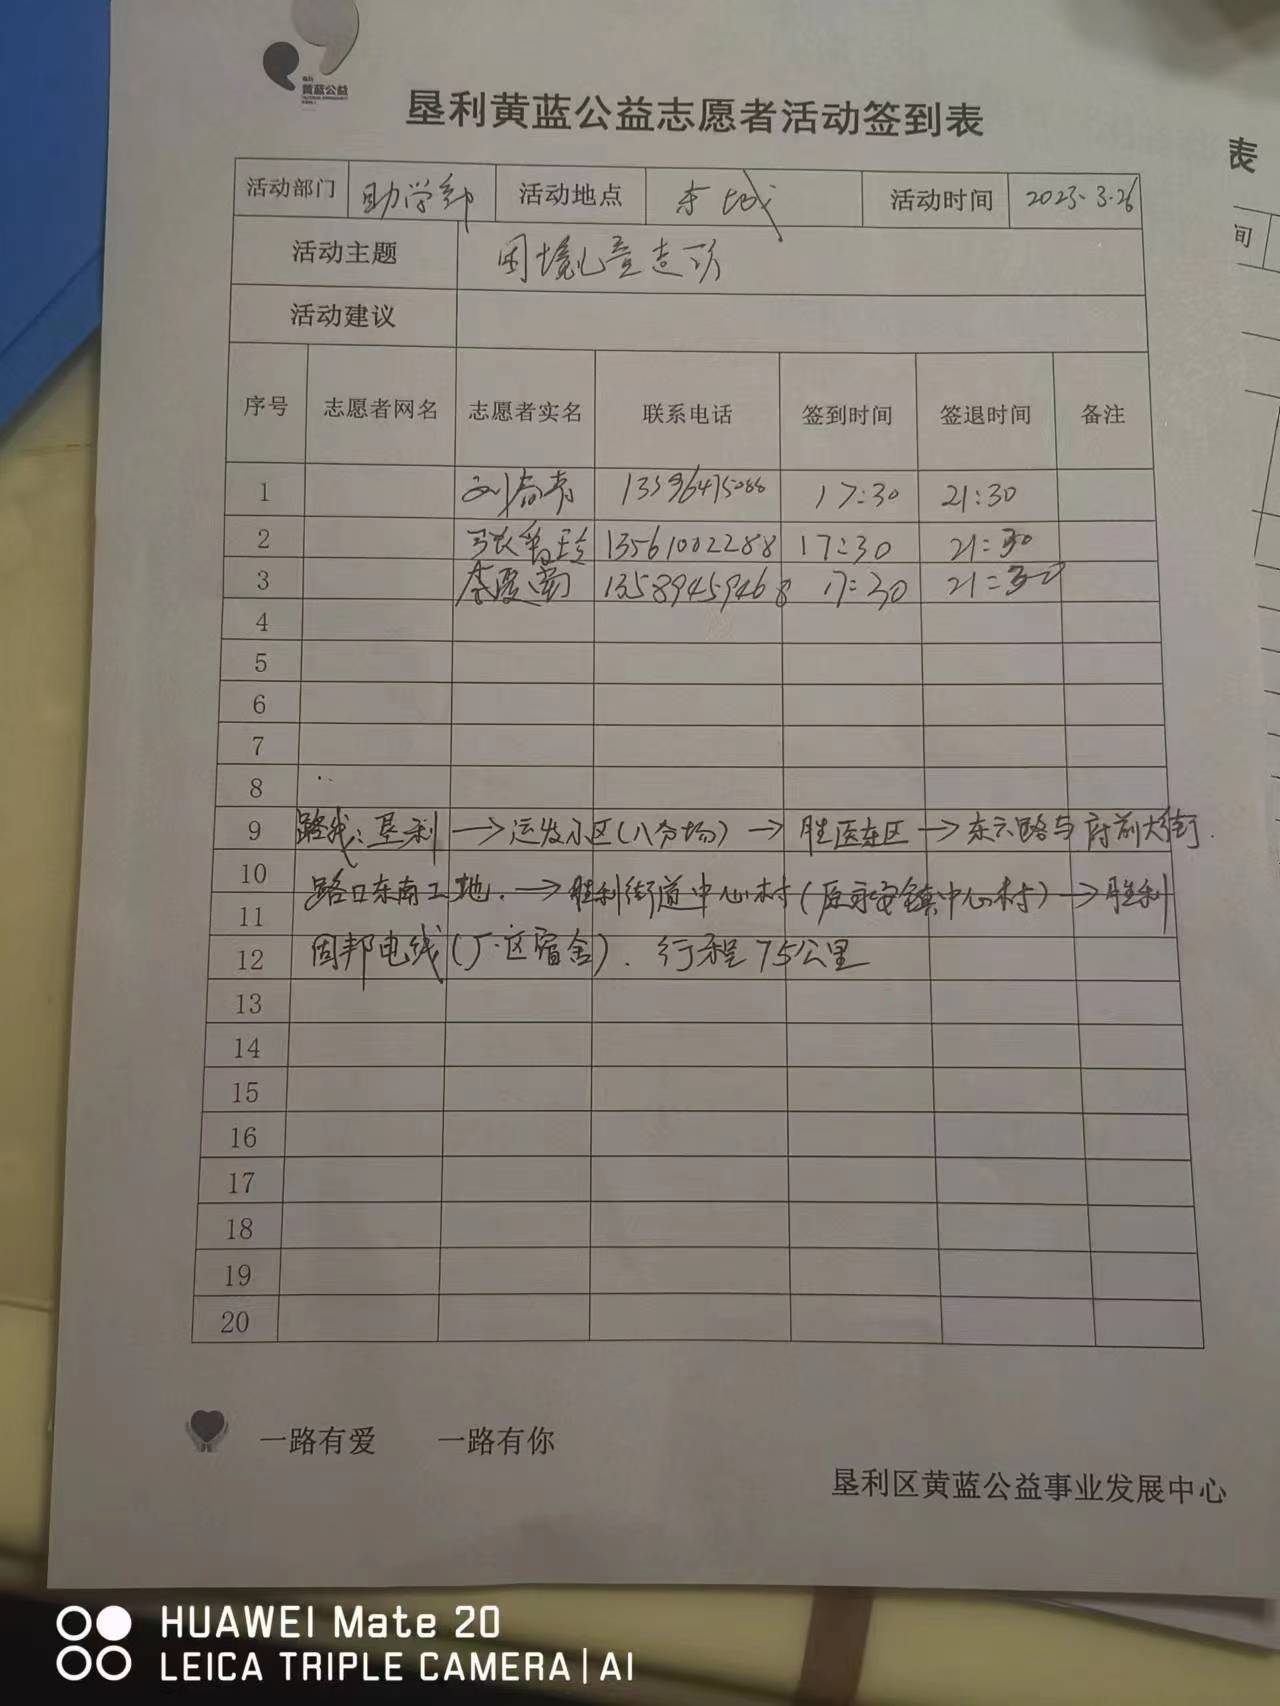 黄蓝公益
垦利黄蓝公益志愿者活动签到表
表
活动部门 助学部 活动地点 东城 活动时间 2023.3.26
间
活动主题 困境儿童走访
活动建议
序号 志愿者网名 志愿者实名 联系电话 签到时间 签退时间 备注
1 刘 17:30 21:30
2 张秀玲 13561002288 17:30 21:30
3 李爱 13589459468 17:30 21:30
4
5
6
7
8
9 路线：垦利→运发小区(八分场)→胜医东区→东六路与府前大街
10 路口东南工地.→胜利街道中心村(原永安镇中心村)→胜利
11
12 固邦电线(厂区宿舍).行程75公里
13
14
15
16
17
18
19
20
一路有爱 一路有你
垦利区黄蓝公益事业发展中心
HUAWEI Mate 20
LEICA TRIPLE CAMERA | AI